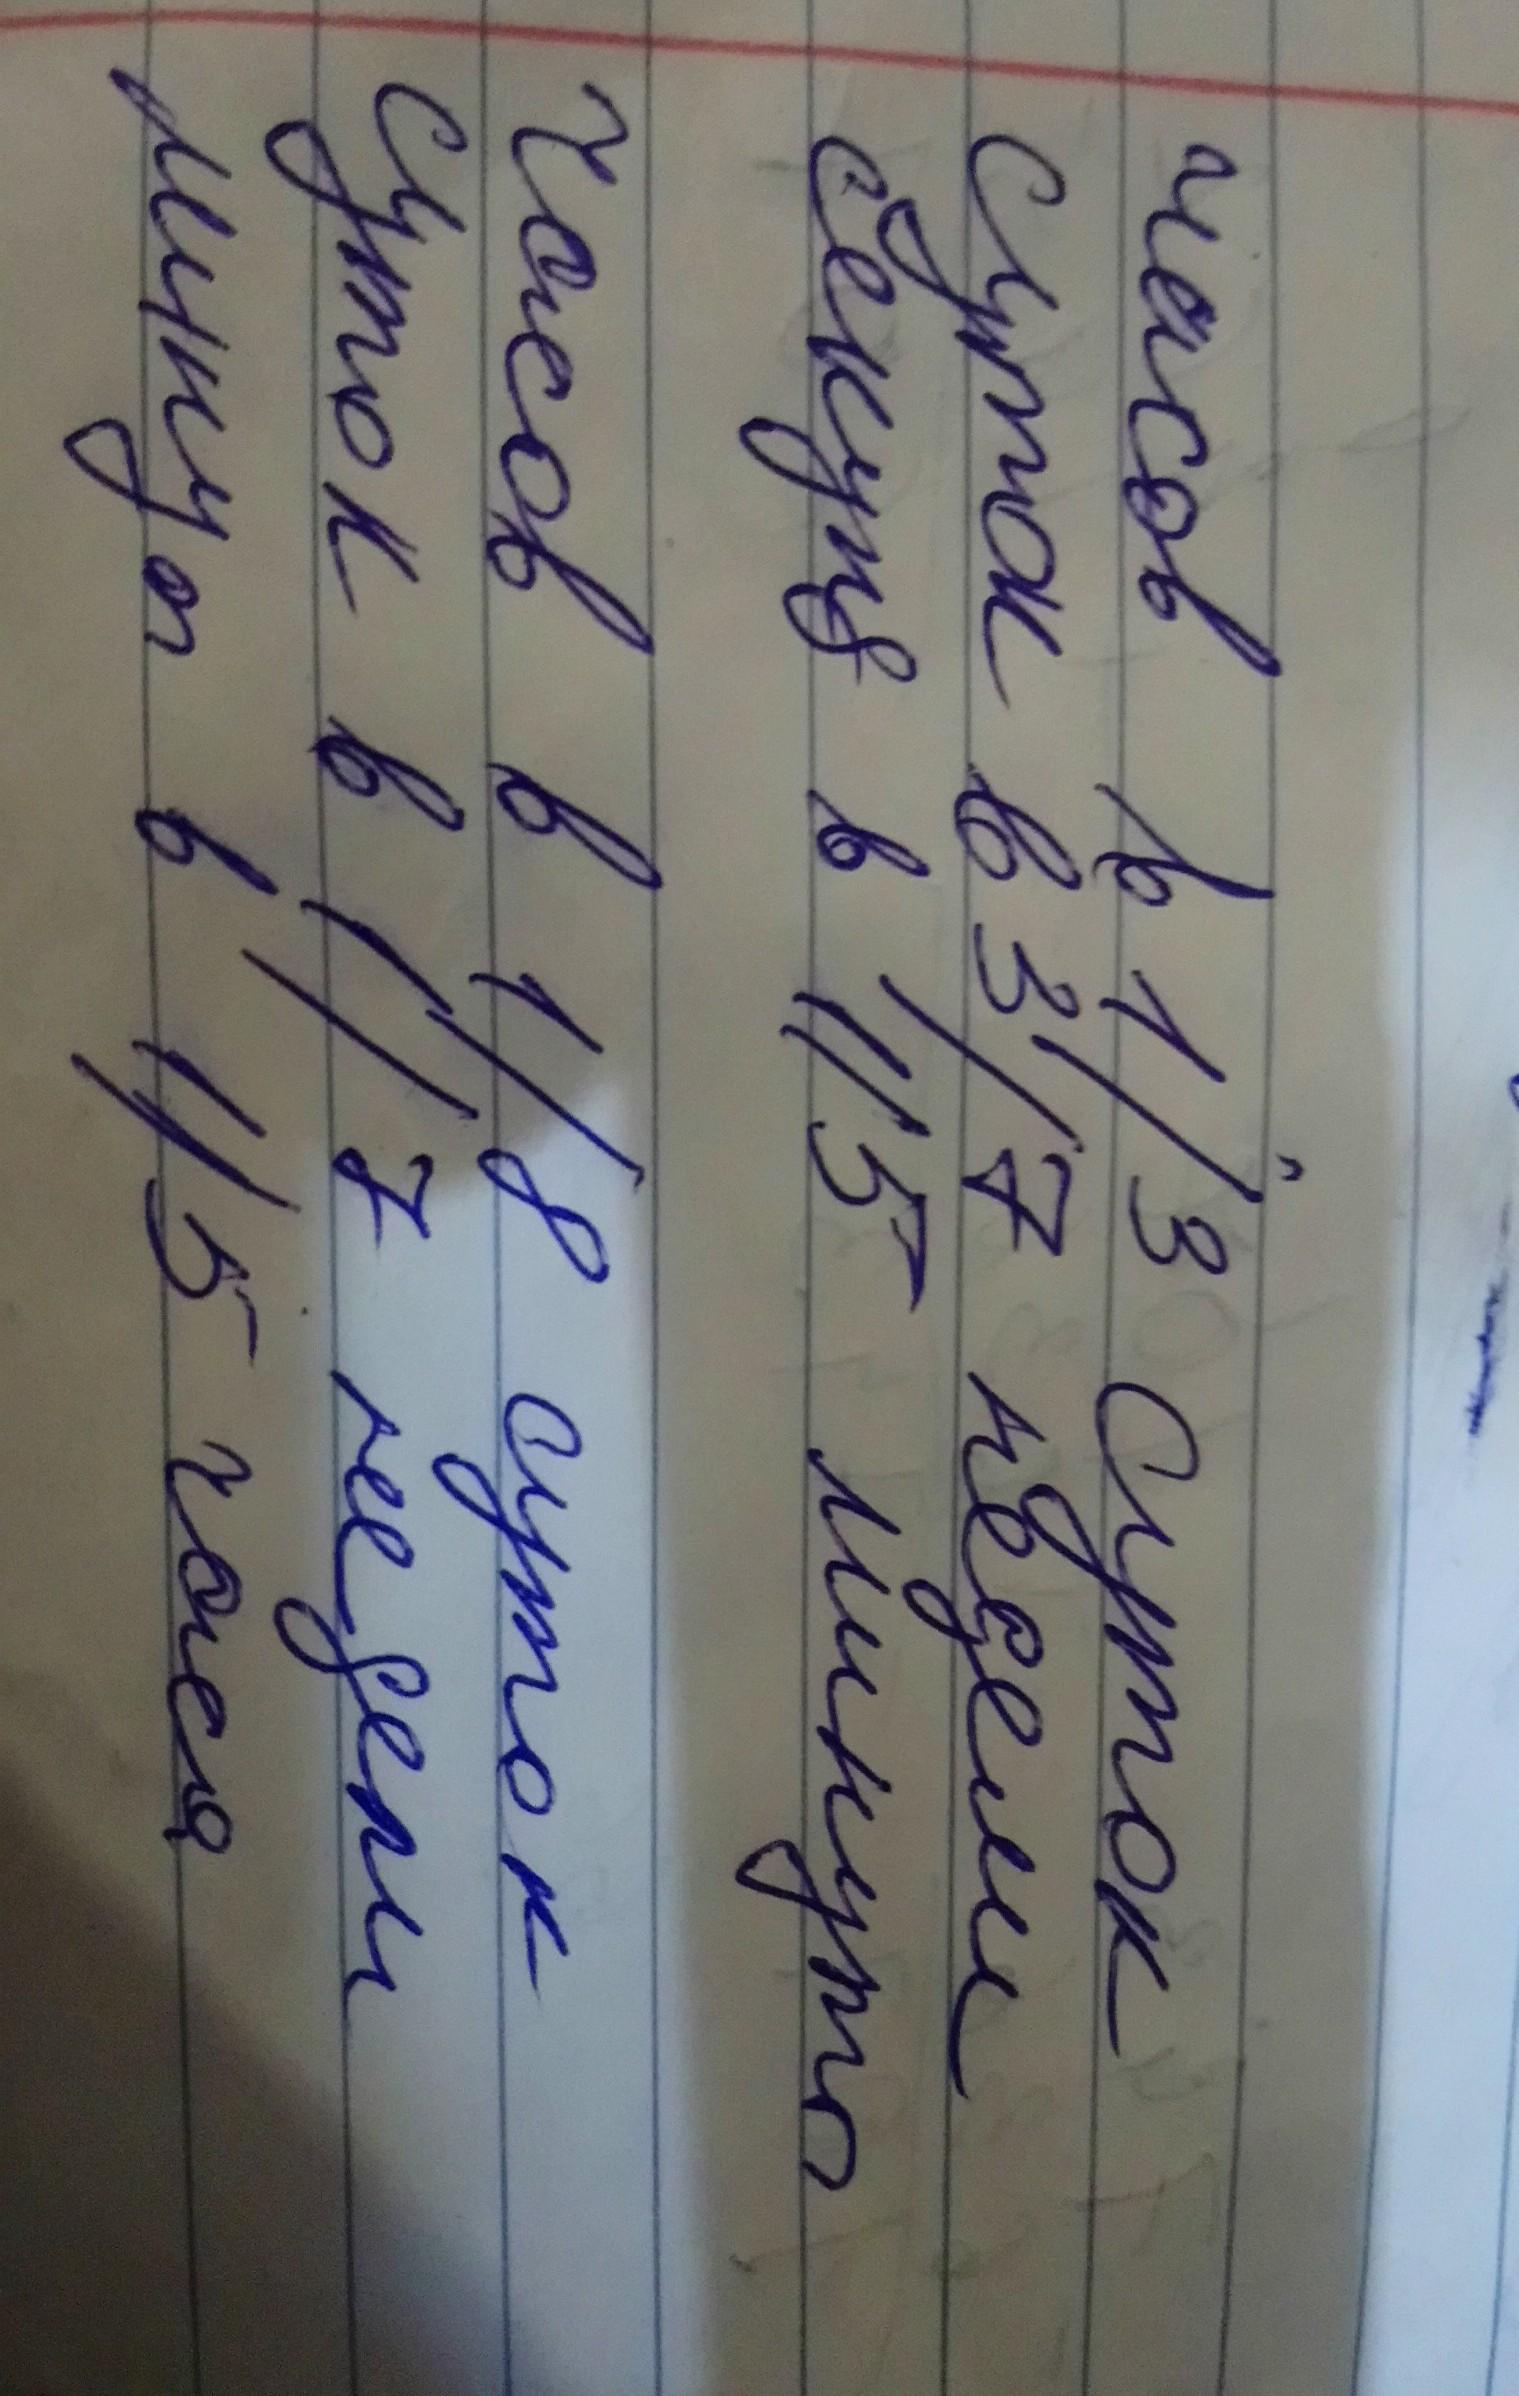 часов в 1/3 суток
суток в 3/7 недели
секунд в 1/5 минуты
часов в 1/8 суток
суток в 1/7 недели
минут в 1/5 часа